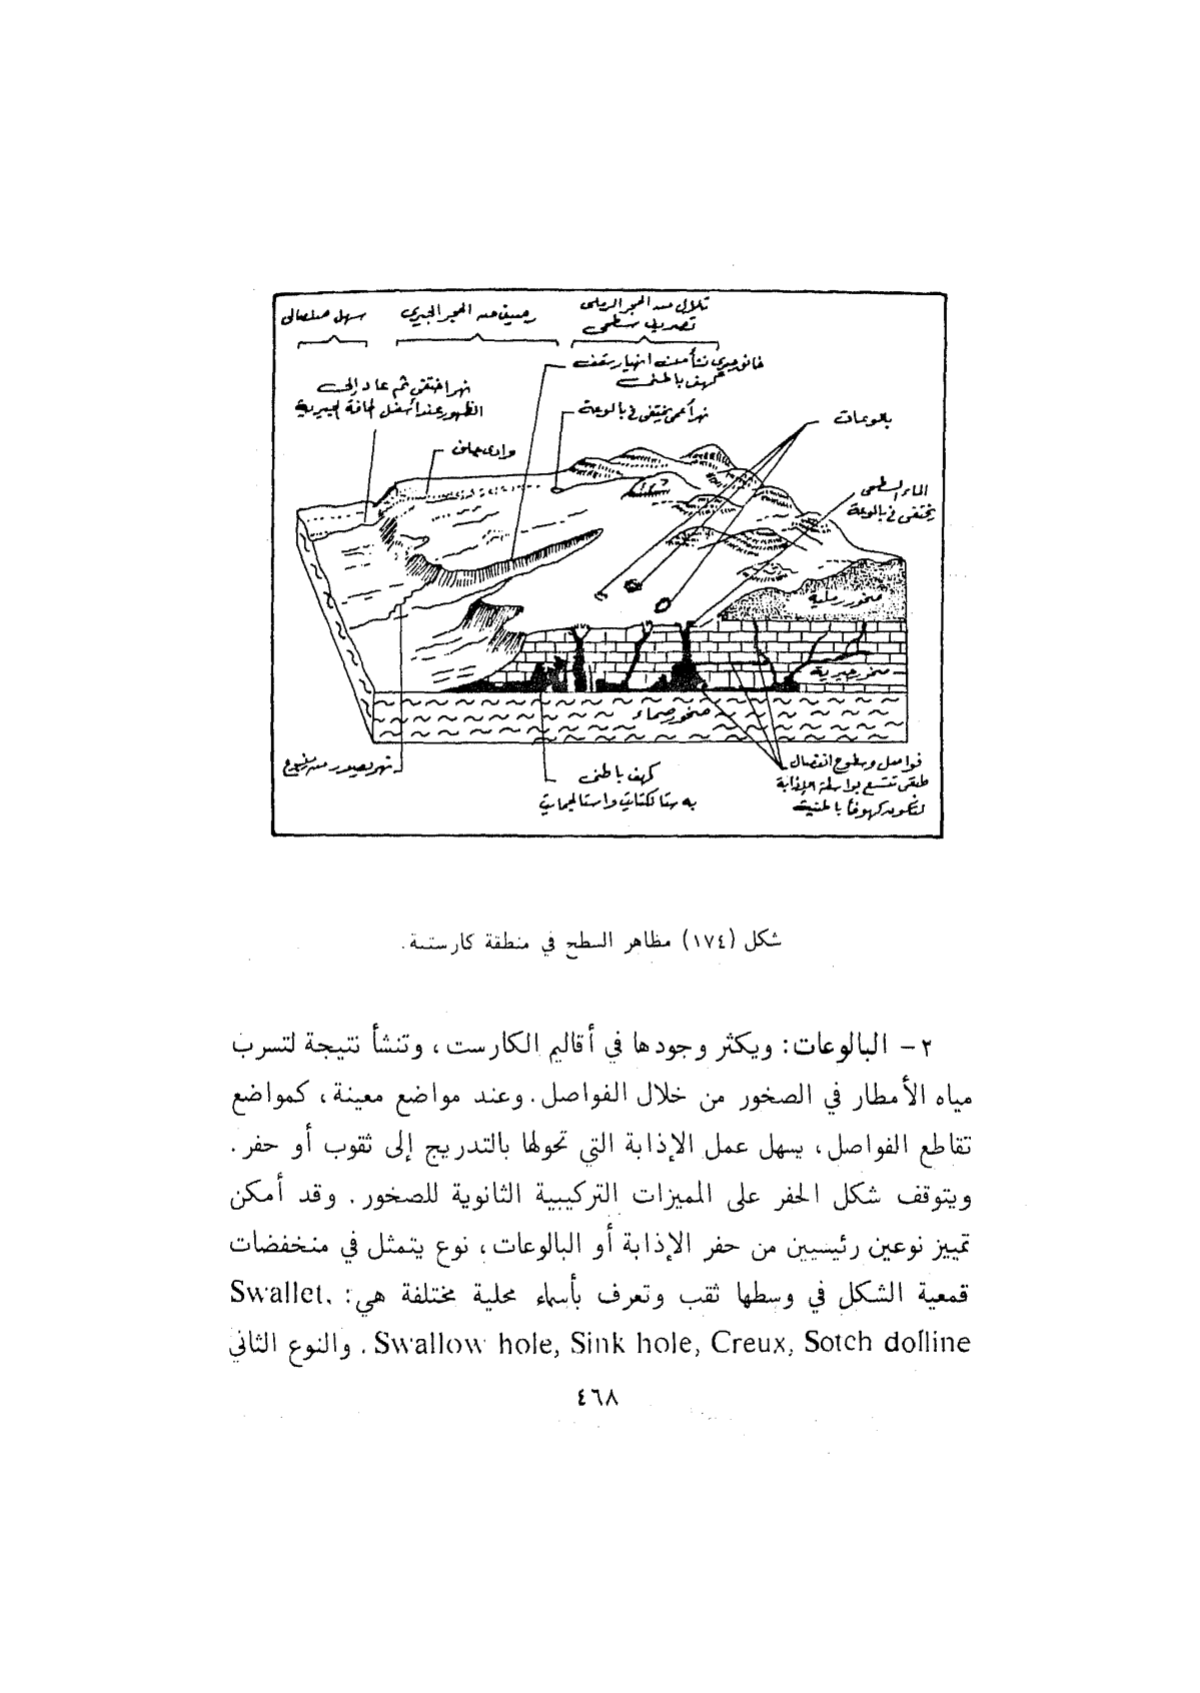 تلال من الحجر الرملى
تصريف سطحى
رصيف من الحجر الجيرى
سهل صلصالى
خانق جيرى نشأ من انهيار سقف
كهف باطنى
نهر اختفى ثم عاد إلى
الظهور عند أسفل الحافة الجيرية
نهر أعمى يختفى فى بالوعة
بالوعات
وادى جاف
الماء السطحى
يختفى فى بالوعة
صخور رملية
صخور جيرية
صخور صماء
نهر يصدر من ينبوع
كهف باطنى
به ستالكتايت واستالجمايت
فواصل وسطوح انفصال
طبقى تتسع بواسطة الإذابة
لتكون كهوفاً باطنية
شكل (١٧٤) مظاهر السطح في منطقة كارستية.
٢- البالوعات: ويكثر وجودها في أقاليم الكارست، وتنشأ نتيجة لتسرب
مياه الأمطار في الصخور من خلال الفواصل. وعند مواضع معينة، كمواضع
تقاطع الفواصل، يسهل عمل الإذابة التي تحولها بالتدريج إلى ثقوب أو حفر.
ويتوقف شكل الحفر على المميزات التركيبية الثانوية للصخور. وقد أمكن
تمييز نوعين رئيسيين من حفر الإذابة أو البالوعات، نوع يتمثل في منخفضات
قمعية الشكل في وسطها ثقب وتعرف بأسماء محلية مختلفة هي: Swallet,
Swallow hole, Sink hole, Creux, Sotch dolline. والنوع الثاني
٤٦٨